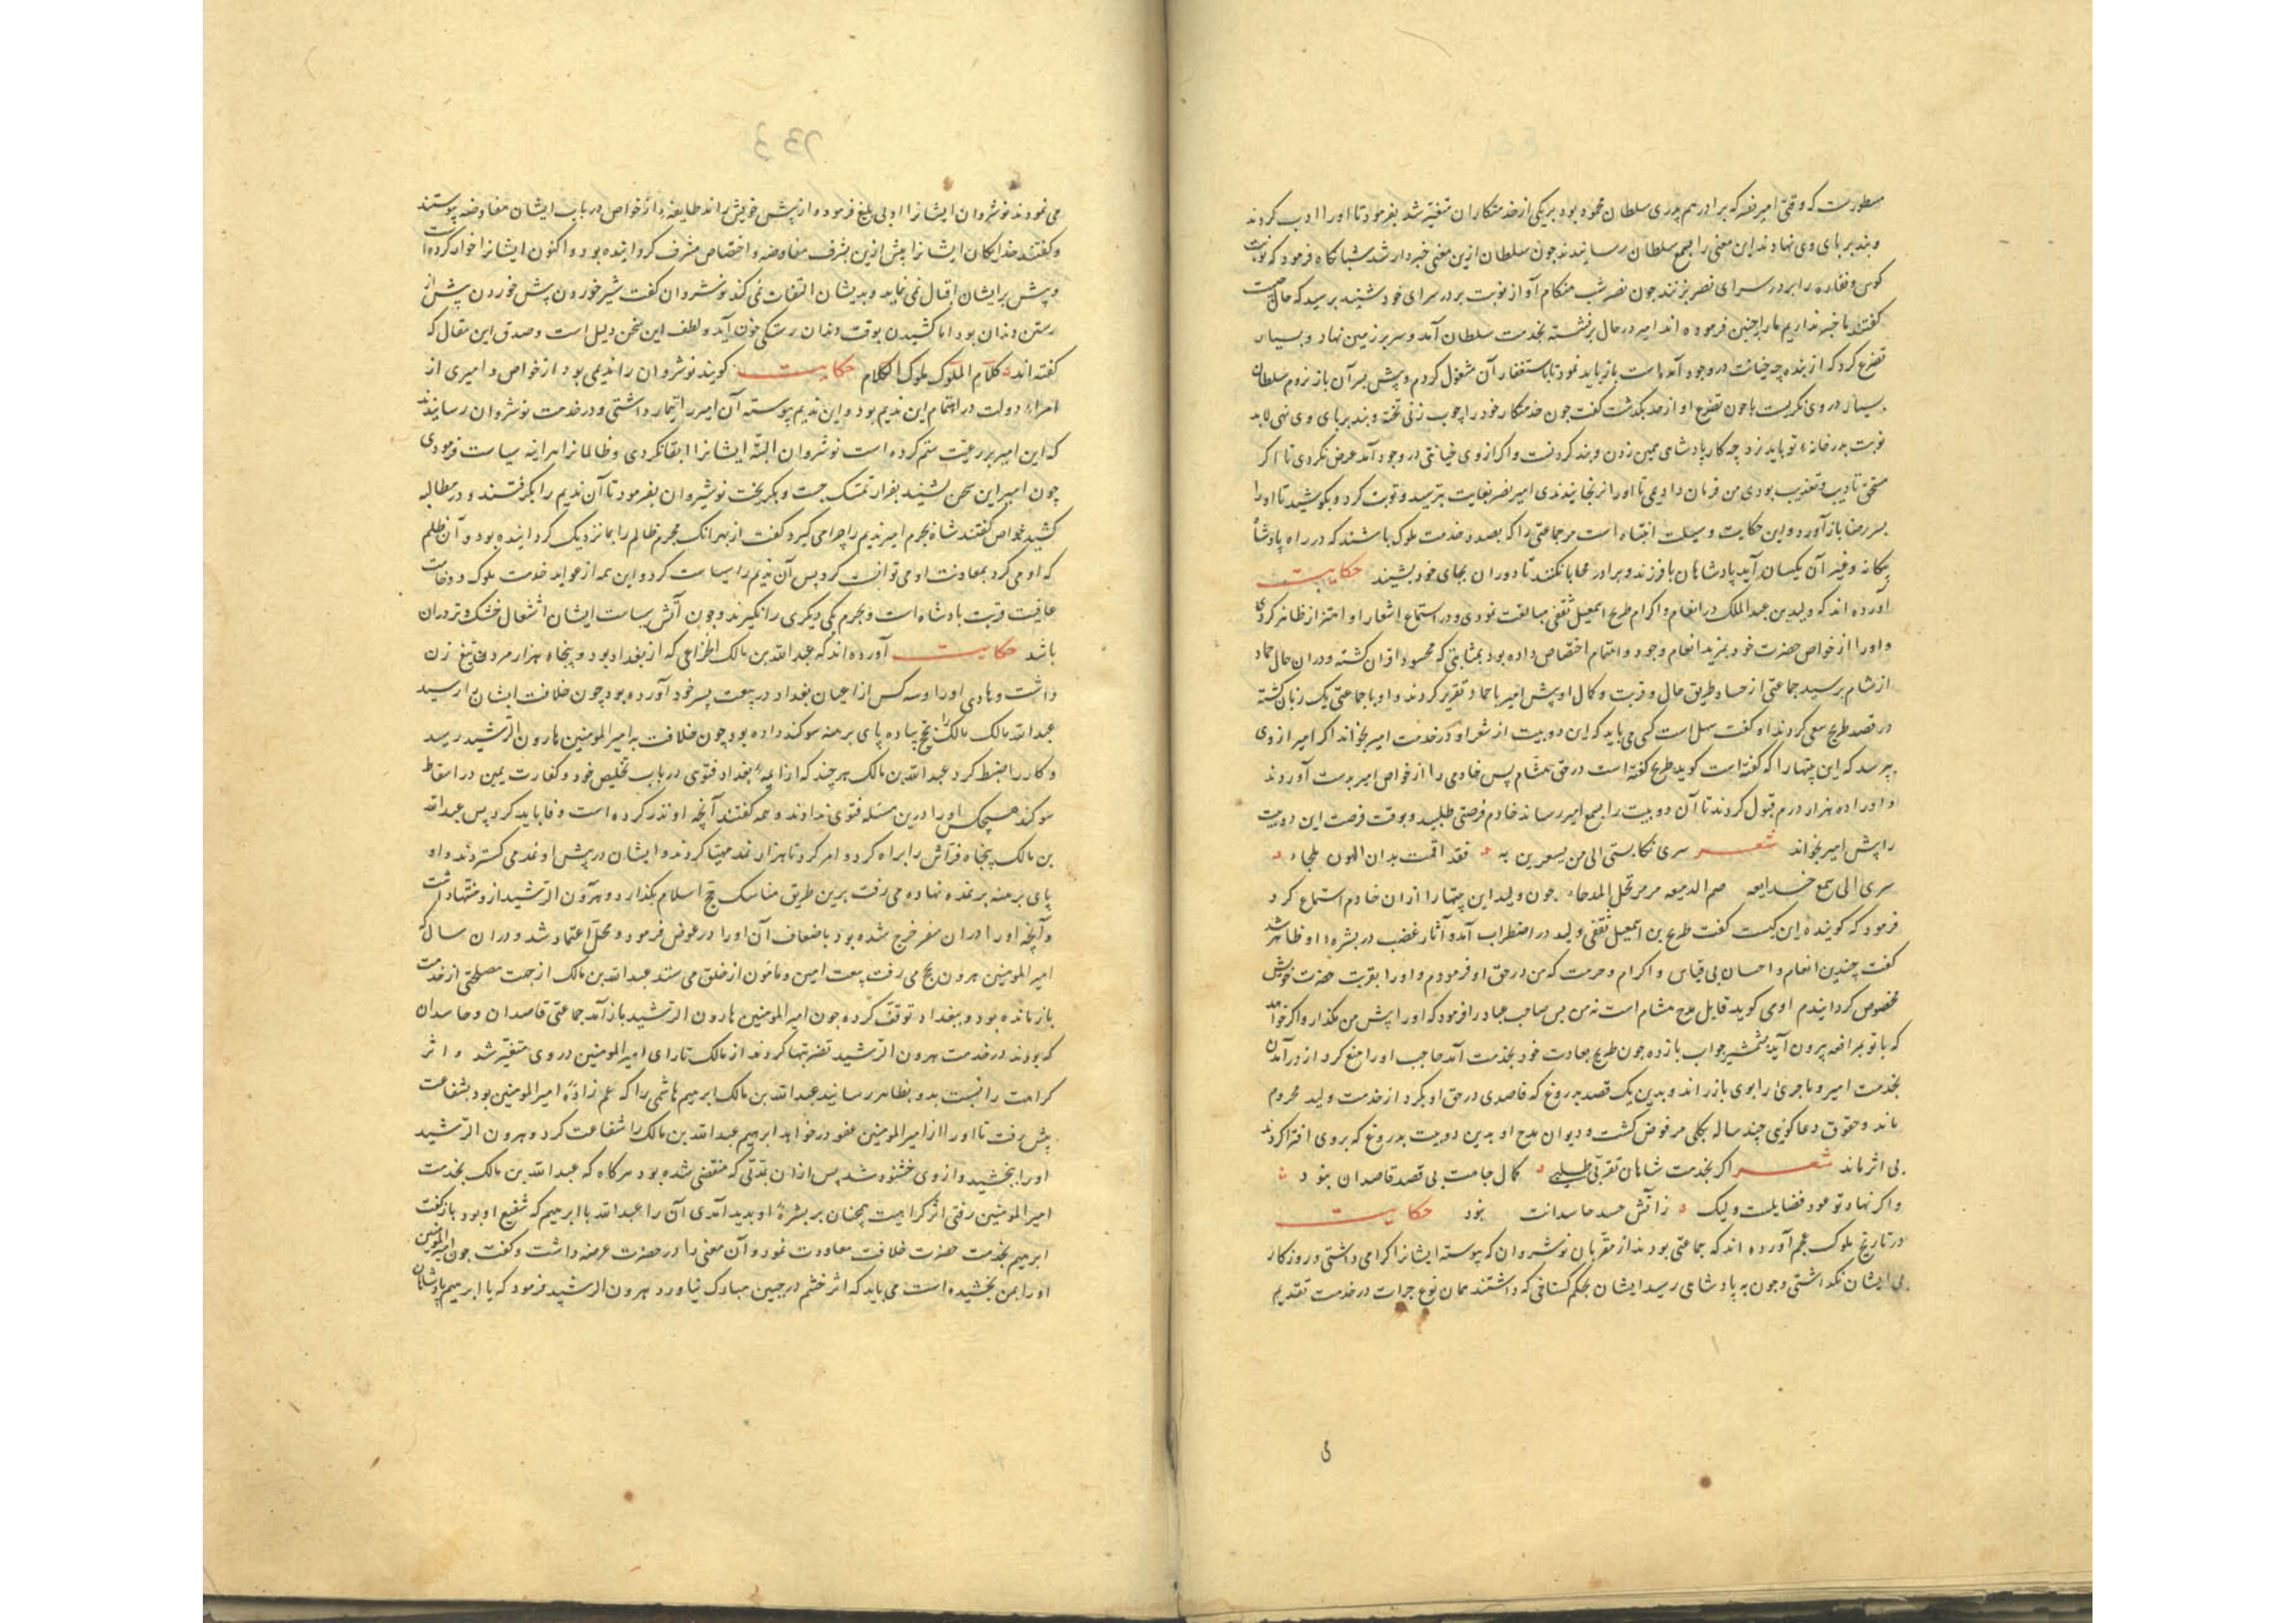 مسطورست که وقتی امیر نصر که برادر هم پدری سلطان محمود بود بر یکی از خدمتکاران متغیر شد بفرمود تا او را ادب کردند
و بند بر پای وی نهادند این معنی را بسمع سلطان رسانیدند چون سلطان ازین معنی خبردار شد شبانکاه فرمود که نوبت
کوس و نقاره را بر در سرای نصر بزنند چون نصر شب هنکام آواز نوبت بر در سرای خود شنید بپرسید که حال چیست
کفتند ما خبر نداریم ما را چنین فرموده اند امیر در حال برنشسته بخدمت سلطان آمد و سر بر زمین نهاد و بسیار
تضرع کرد که از بنده چه خیانت در وجود آمده است باز باید نمود تا باستغفار آن مشغول کردم و پیش بسر آن باز نروم سلطان
بسیار در وی نکریست چون تضرع او از حد بکذشت کفت چون خدمتکار خود را چوب زنی و بند بر پای وی نهی لابد
نوبت بدر خانهٔ تو باید زد چه کار پادشاهی همین زدن و بند کردنست و اکر از وی خیانتی در وجود آمد عرض نکردی تا اکر
مستحق تادیب و تعذیب بودی من فرمان دادمی تا او را برنجانیدندی امیر نصر بغایت بترسید و توبت کرد و بکوشید تا او را
بسر رضا باز آورد و این حکایت وسیلت انتباه است مر جماعتی را که بصدد خدمت ملوک باشند که در راه پادشاه
بیکانه و غیر آن یکسان آید پادشاهان با فرزند و برادر محابا نکنند تا دوران بجای خود بنشیند حکایت
آورده اند که ولید بن عبدالملک در انعام و اکرام طریح اسمعیل ثقفی مبالغت نمودی و در استماع اشعار او اهتزاز ظاهر کردی
و او را از خواص حضرت خود بمزید انعام وجود و اهتمام اختصاص داده بود بمثابتی که محسود اقران کشته و در آن حال حماد
از شام برسید جماعتی از حساد طریق حال و قربت و کمال او پیش امیر با حماد تقریر کردند و او با جماعتی یک زبان کشته
در قصد طریح سعی کردند او کفت سهل است کسی می باید که این دو بیت از شعر او در خدمت امیر بخواند اکر امیر از وی
بپرسد که این بیتها را که کفته است کوید طریح کفته است در حق هشام پس خادمی را از خواص امیر بدست آوردند
و او را ده هزار درم قبول کردند تا آن دو بیت را بسمع امیر رساند خادم فرصتی طلبید و بوقت فرصت این دو بیت
را پیش امیر بخواند شعر سری رکابی الی من یسعدون به فقد اقمت بدار الهون ملجاء
سری الی سمع صم الدسیعه مرمر تحمل المدحا چون ولید این بیتها را از آن خادم استماع کرد
فرمود که کویندهٔ این کیست کفت طریح بن اسمعیل ثقفی ولید در اضطراب آمد و آثار غضب در بشرهٔ او ظاهر شد
کفت چندین انعام و احسان بی قیاس و اکرام و حرمت که من در حق او فرمودم و او را بقربت حضرت خویش
مخصوص کردانیدم او می کوید قابل مدح هشام است نه من پس صاحب جبا درا فرمود که او را پیش من مکذار و اکر خواهد
که با تو بمرافعه بیرون آید بشمشیر جواب باز ده چون طریح بعادت خود بخدمت آمد حاجب او را منع کرد از درآمدن
بخدمت امیر و ماجری را بوی باز راند و بدین یک قصد بدروغ که قاصدی در حق او بکرد از خدمت ولید محروم
ماند و حقوق دعاکویی چند ساله بکلی مرفوض کشت و دیوان مدح او بدین دو بیت بدروغ که بر وی افترا کردند
بی اثر ماند شعر اکر بخدمت شاهان تقربی طلبی کمال جاهت بی قصد قاصدان نبود
و اکر نهاد تو عود فضایلست ولیک ز آتش حسد حاسدانت نبود حکایت
در تاریخ ملوک عجم آورده اند که جماعتی بودند از مقربان نوشروان که پیوسته ایشانرا کرامی داشتی و روزکار
بی ایشان نکذاشتی و چون به پادشاهی رسید ایشان بحکم کستاخی که داشتند همان نوع جرات در خدمت تقدیم
می نمودند نوشروان ایشانرا ادبی بلیغ فرمود و از پیش خویش راند طایفهٔ از خواص در باب ایشان مفاوضه پیوستند
و کفتند خدایکان ایشانرا پیش ازین بشرف مفاوضه و اختصاص مشرف کردانیده بود و اکنون ایشانرا خوار کرده است
و پیش بر ایشان اقبال نمی نماید و بدیشان التفات نمی کند نوشروان کفت شیر خوردن پیش خوردن پیش از
رستن دندان بود اما کشیدن بوقت دندان رستکی خون آید و لطف این سخن دلیل است و صدق این مقال که
کفته اند کلام الملوک ملوک الکلام حکایت کویند نوشروان را ندیمی بود از خواص و امیری از
امراء دولت در اهتمام این ندیم بود و این ندیم پیوسته آن امیر را تیمار داشتی و در خدمت نوشروان رسانیدند
که این امیر بر رعیت ستم کرده است نوشروان البته ایشانرا ابقا نکردی و ظالمانرا هر آینه سیاست فرمودی
چون امیر این سخن بشنید بفرار تمسک جست و بکریخت نوشیروان بفرمود تا آن ندیم را بکرفتند و در مطالبه
کشید خواص کفتند شاه بجرم امیر ندیم را چرا می کیرد کفت از بهر آنک مجرم ظالم را بما نزدیک کردانیده بود و آن ظلم
که او می کرد بمعاونت او می توانست کرد پس آن ندیم را سیاست کرد و این همه از عواید خدمت ملوک و وخامت
عاقبت قربت پادشاه است و بجرم یکی دیکری را نکیرند و چون آتش سیاست ایشان اشتعال خشک و تر در آن
باشد حکایت آورده اند که عبدالله بن مالک الخزاعی که از بغداد بود و پنجاه هزار مرد تیغ زن
داشت و هادی او را و سه کس از اعیان بغداد در بیعت پسر خود آورده بود چون خلافت ایشان برسید
عبدالله مالک را بحج پیاده پای برهنه سوکند داده بود چون خلافت به امیر المومنین هارون الرشید رسید
و کار را ضبط کرد عبدالله بن مالک هر چند که از ایمهٔ بغداد فتوی در باب تخلیص خود و کفارت یمین در اسقاط
سوکند هیچکس او را درین مسئله فتوی ندادند و همه کفتند آنچه او نذر کرده است وفا باید کرد پس عبدالله
بن مالک پنجاه فراش را براه کرد و امر کرد تا هزار نمد مهیا کردند و ایشان در پیش او نمد می کستردند و او
پای برهنه بر نمد نهاده می رفت برین طریق مناسک حج اسلام بکذارد و هرون الرشید ازو منتها داشت
و آنچه او را در آن سفر خرج شده بود باضعاف آن او را در عوض فرمود و محل اعتماد شد و در آن سال که
امیر المومنین هرون بحج می رفت بیعت امین و مامون از خلق می ستد عبدالله بن مالک از جهت مصلحتی از خدمت
باز مانده بود و ببغداد توقف کرده چون امیر المومنین هارون الرشید باز آمد جماعتی قاصدان و حاسدان
که بودند در خدمت هرون الرشید تضریبها کردند از مالک تا رای امیر المومنین در وی متغیر شد و اثر
کراهت را نسبت بدو بظاهر رسانید عبدالله بن مالک ابرهیم هاشمی را که عم زادهٔ امیر المومنین بود بشفاعت
پیش رفت تا او را از امیر المومنین عفو در خواهد ابرهیم عبدالله بن مالک را شفاعت کرد و هرون الرشید
او را ببخشید و از وی خشنود شد پس از آن بمدتی که منقضی شده بود هرکاه که عبدالله بن مالک بخدمت
امیر المومنین رفتی اثر کراهیت همچنان بر بشرهٔ او بدید آمدی آن را عبدالله با ابرهیم که شفیع او بود باز کفت
ابرهیم بخدمت حضرت خلافت معاودت نمود و آن معنی را در حضرت عرضه داشت و کفت چون امیر المومنین
او را بمن بخشیده است می باید که اثر خشم در جبین مبارک نیاورد هرون الرشید فرمود که یا ابرهیم پادشاهان